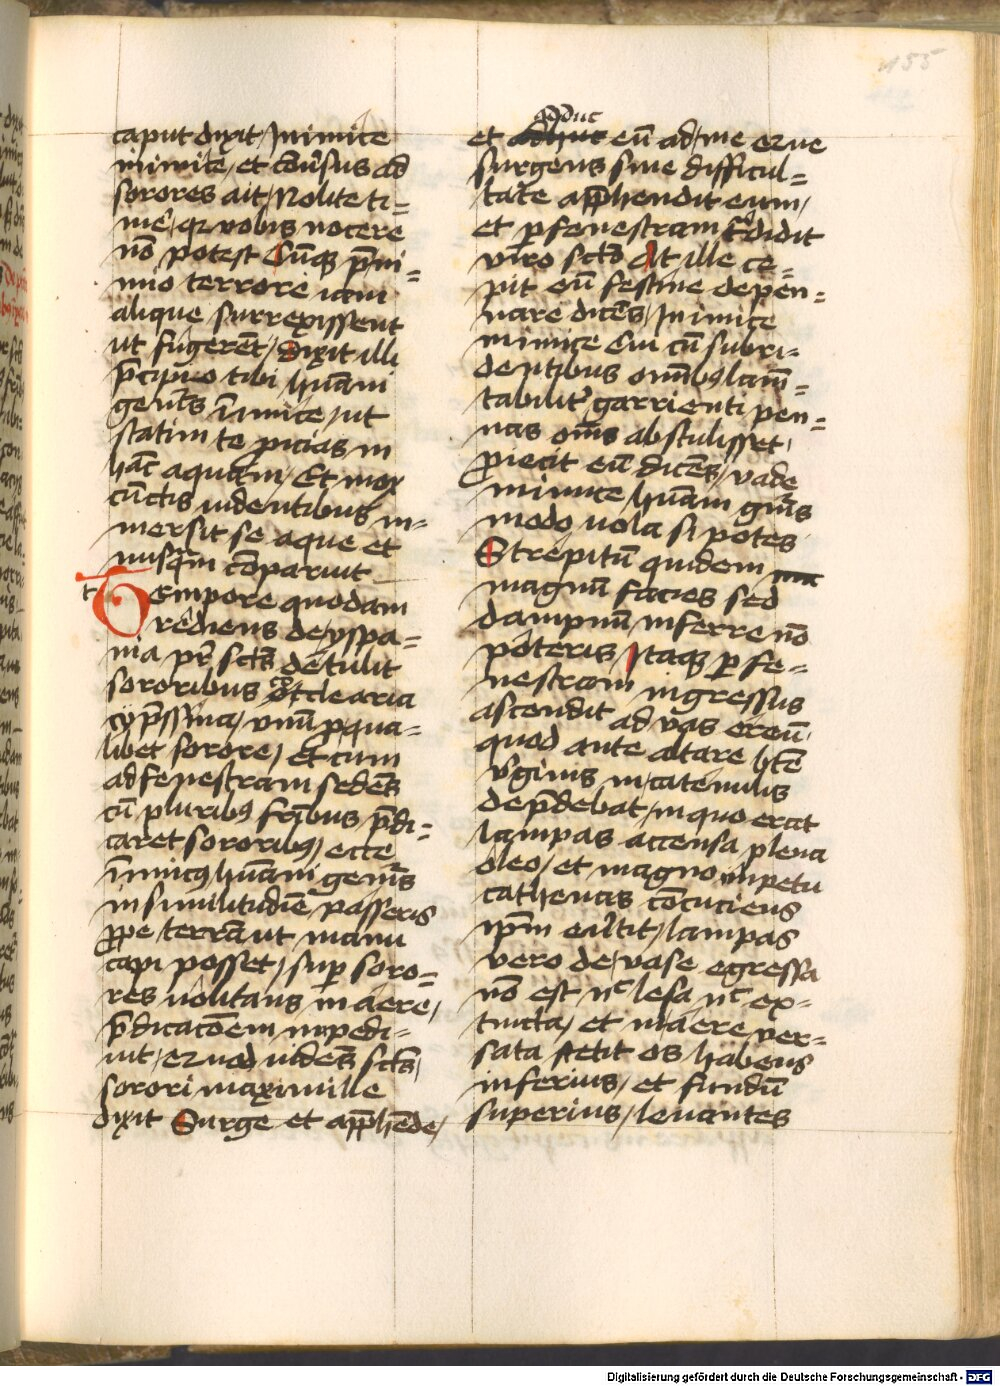 155
caput dixit / Inimice
inimice / et cōuersus ad
sorores ait / Nolite ti=
mē / qꝛ vobis nocere
nō potest Cūqꝫ p̄ ni=
mio terrore iam
alique surrexissent
ut fugerēt / dixit illi
p̄cipio tibi hūani
gen̄is īimice / ut
statim te picias in
hāc aquam / Et mox
cūctis uidentibus in=
mersit se aque et
nusqᷓm cōparuit
t Tempore quodam
rediens de yspa=
nia pr̄ sctūs detulit
sororibus coclearia
cyp̄ssina / vnū p qua=
libet sorore / Et cum
ad fenestram sedens
cū pluribꝰ fr̄ibus p̄di=
caret sororibꝰ / ecce
īnimicꝰ hūani gen̄is
in similitudīe passeris
ꝓpe terrā ut manu
capi posset / sup soro=
res uolitans in aere /
p̄dicacōem impedi=
uit / qꝛuod uidens sctūs /
sorori maximille
dixit Surge et app̄hēde /
adduc
et eū ad me qꝛue
surgens sine difficul=
tate app̄hendit eum /
et p fenestram t̄didit
viro sctō At ille ce=
pit eū festine depen=
nare dicēs / Inimice
inimice Cui cū subri=
dentibus om̄ibꝰ lam̄=
tabilit garrienti pen=
nas om̄s abstulisset /
proiecit eū dicēs / vade
inimice / hūani gn̄is
modo uola si potes
Strepitū quidem
magnū facies sed
dampnū inferre nō
poteris Itaqꝫ p fe=
nestram ingressus
ascendit ad vas ereū /
quod ante altare bt̄e
v̄ginis in catenulis
dep̄debat / in quo erat
lampas accensa plena
oleo / et magno impetu
cathenas cōcuciens
ip̄m eūtit / lampas
vero de vase egressa
nō est nͨ lesa nͨ ex=
tincta / et in aere ver=
sata stetit os habens
inferius / et fundū
superius / leuantes
Digitalisierung gefördert durch die Deutsche Forschungsgemeinschaft - DFG